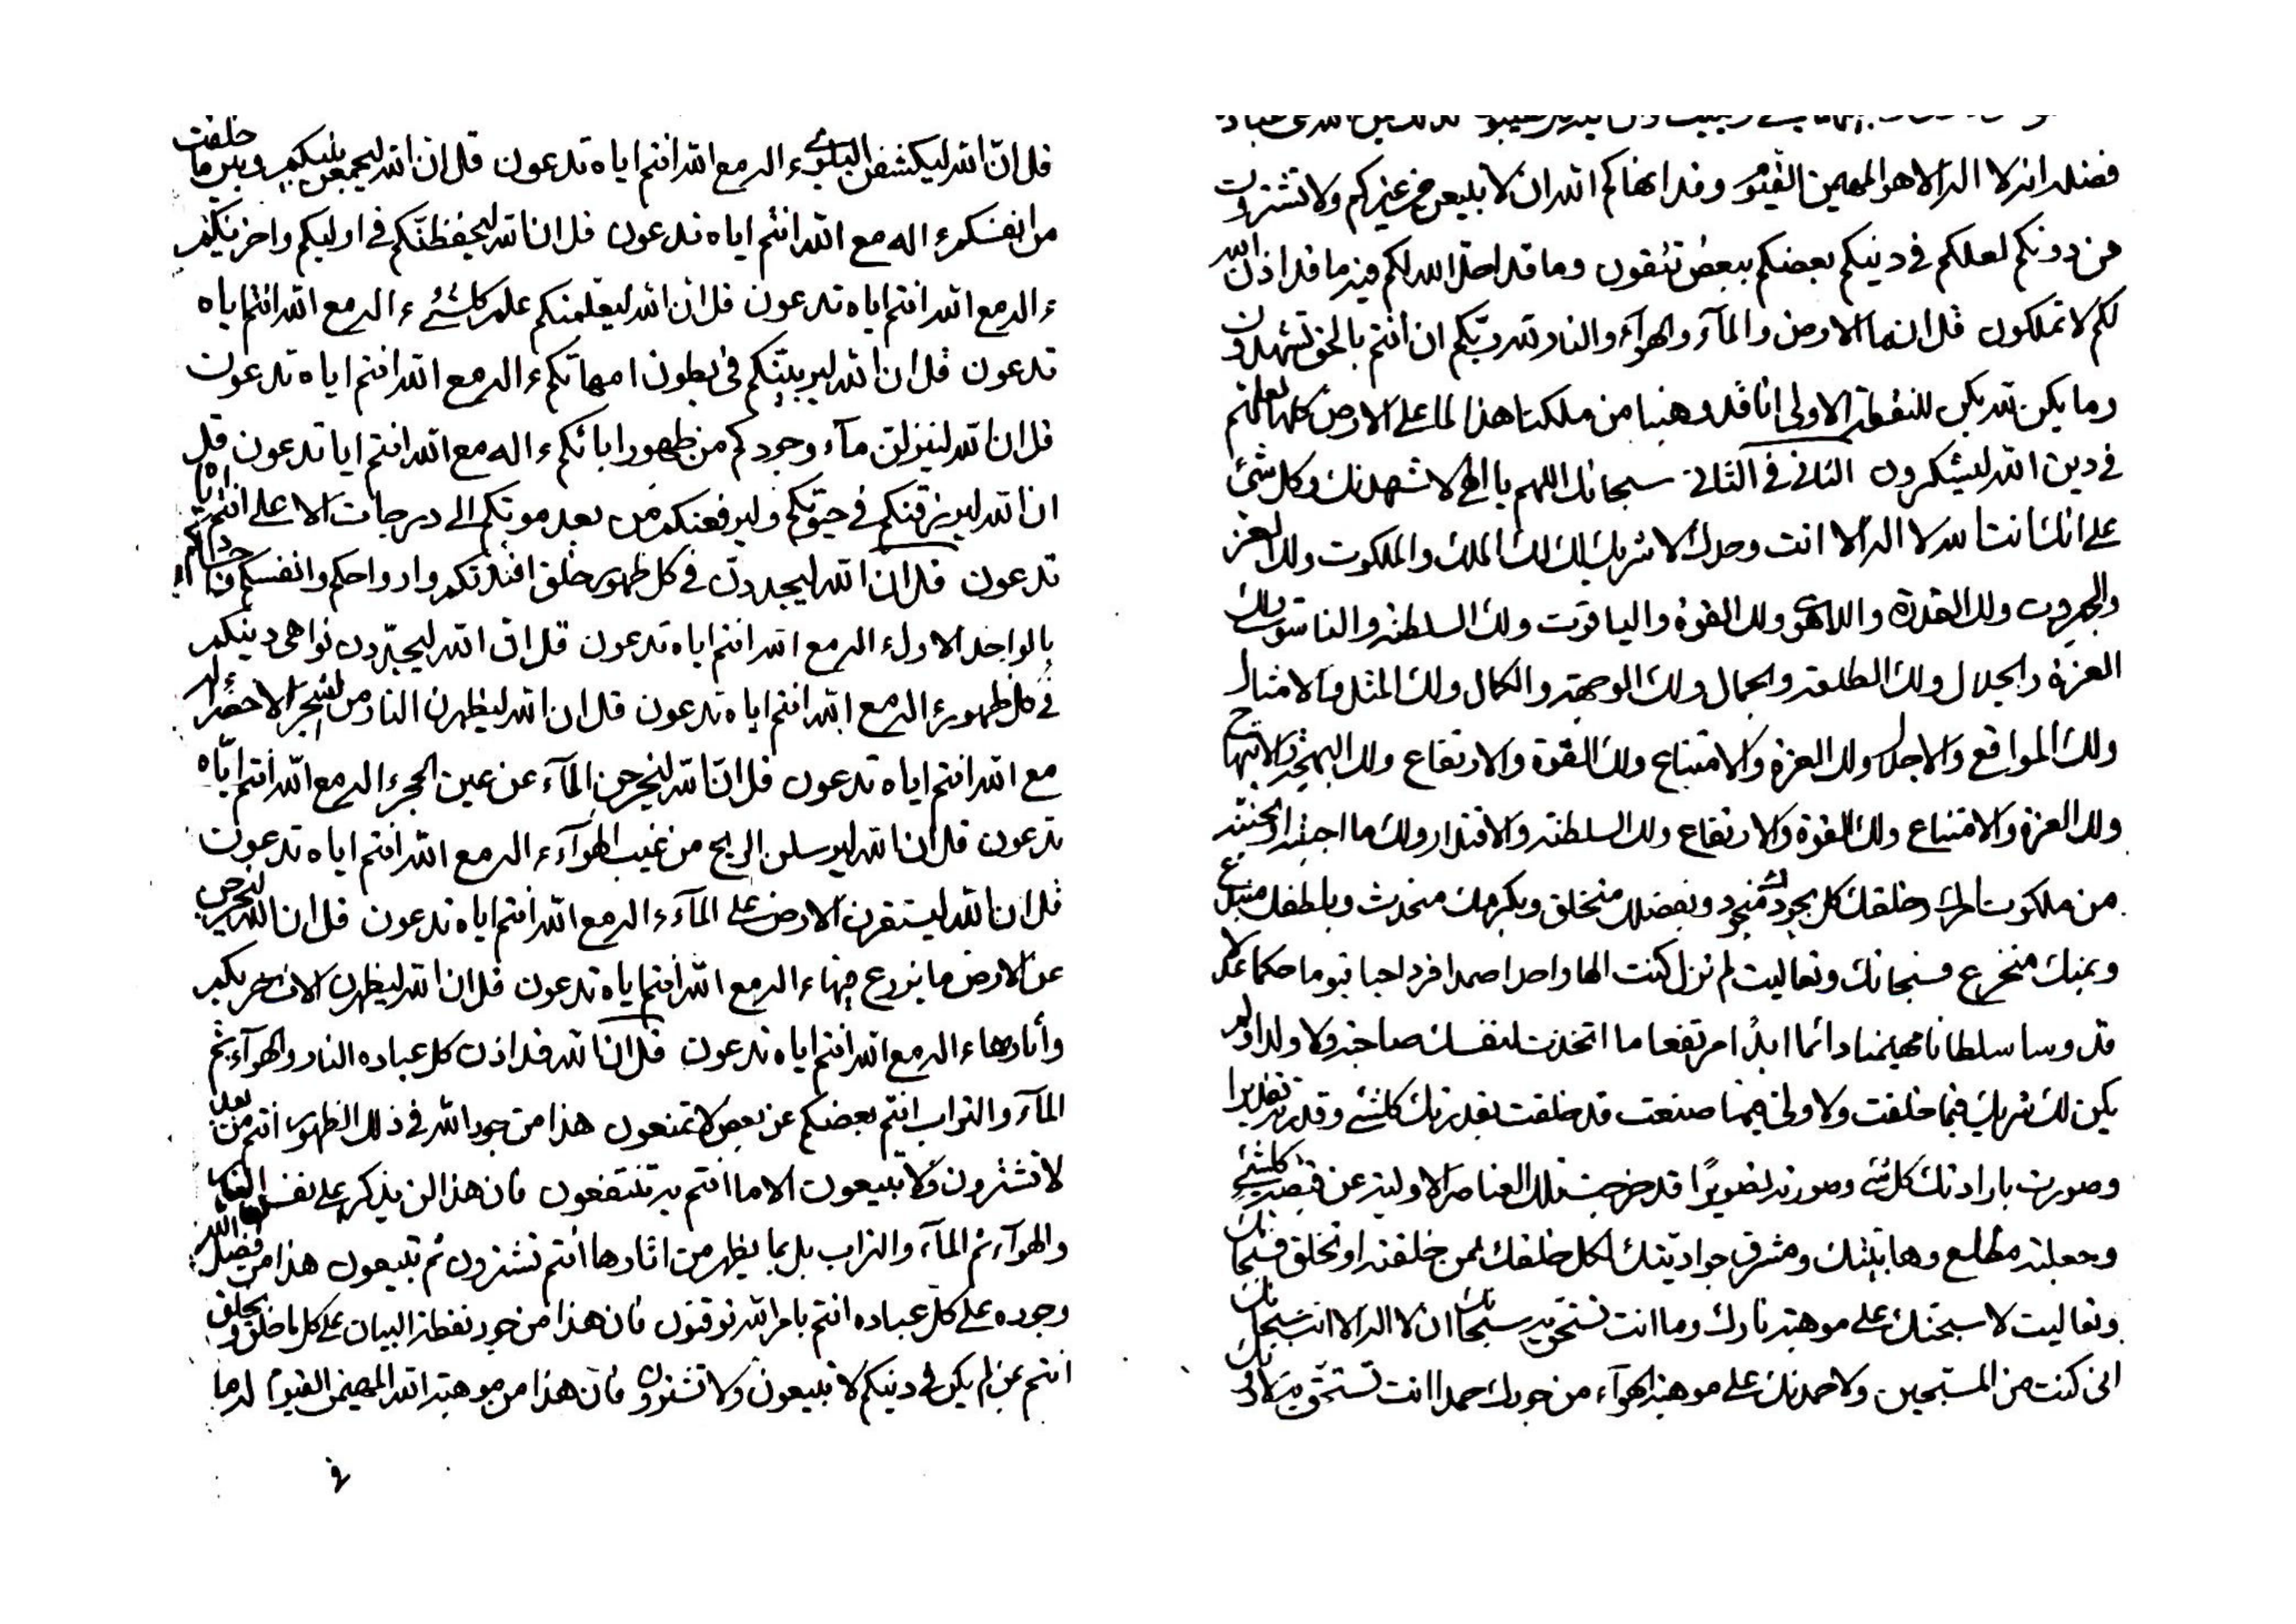 فضله انه لا اله الا هو المهيمن القيوم وقد انهاكم الله ان لا تبيعن من غيركم ولا تشترون
من دونكم لعلكم في دينكم بعضكم ببعض تتقون وما قد احل الله لكم فيه ما قد اذن الله
لكم لا تملكون قل انما الارض والمآء والهوآء والنار لله ربكم ان انتم بالحق تشهدون
وما يكن لله يكن للنقطة الاولى انا قد وهبنا من ملكنا هذا لما على الارض كلها لعلهم
في دين الله ليشكرون الثاني في الثاني سبحانك اللهم يا الهي لاشهدنك وكل شئ
على انك انت الله لا اله الا انت وحدك لا شريك لك لك الملك والملكوت ولك العز
والجبروت ولك القدرة واللاهوت ولك القوة والياقوت ولك السلطنة والناسوت ولك
العزة والجلال ولك الطلعة والجمال ولك الوجهة والكمال ولك المثل والامثال
ولك المواقع والاجلال ولك العزة والامتناع ولك القوة والارتفاع ولك البهجة والابتهاج
ولك العزة والامتناع ولك القوة والارتفاع ولك السلطنة والاقتدار ولك ما احببته او تحببنه
من ملكوت امرك وخلقك كل بجودك منجود وبفضلك منخلق وبكرمك منحدث وبلطفك منبدع
وبمنك منخرع فسبحانك وتعاليت لم تزل كنت الها واحدا صمدا فردا حيا قيوما حكما عدلا
قدوسا سلطانا مهيمنا دائما ابدا مرتفعا ما اتخذت لنفسك صاحبة ولا ولدا ولم
يكن لك شريك فيما خلقت ولا ولي فيما صنعت قد خلقت بقدرتك كلشئ وقدرته تقديرا
وصورت بارادتك كل شئ وصورته تصويرا قد خرجت تلك العناصر الاولية عن قبضة كلشئ
وجعلته مطلع وهابيتك ومشرق جواديتك لكل خلقك لمن خلقته او تخلق فسبحانك
وتعاليت لاسبحنك على موهبة نارك وما انت تستحق به سبحانك ان لا اله الا انت سبحانك
انى كنت من المسبحين ولاحمدنك على موهبة الهوآء من جودك حمدا انت تستحق به لا
قل ان الله ليكشفن البلوى ءاله مع الله انتم اياه تدعون قل ان الله ليجمعن بينكم وبين ما خلقت
من انفسكم ءاله مع الله انتم اياه تدعون قل ان الله ليحفظنكم في اوليكم واخريكم
ءاله مع الله انتم اياه تدعون قل ان الله ليعلمنكم علم كلشئ ءاله مع الله انتم اياه
تدعون قل ان الله ليربينكم في بطون امهاتكم ءاله مع الله انتم اياه تدعون
قل ان الله لينزلن مآء وجودكم من ظهور ابائكم ءاله مع الله انتم ايا تدعون قل
ان الله ليرزقنكم في حيوتكم وليرفعنكم من بعد موتكم الى درجات الاعلى انتم اياه
تدعون قل ان الله ليجددن في كل ظهور خلق افئدتكم وارواحكم وانفسكم
بالواحد الاول ءاله مع الله انتم اياه تدعون قل ان الله ليجددن نواهى دينكم
في كل ظهور ءاله مع الله انتم اياه تدعون قل ان الله ليظهرن النار من الشجر الاخضر ءاله
مع الله انتم اياه تدعون قل ان الله ليخرجن المآء عن عين الحجر ءاله مع الله انتم اياه
تدعون قل ان الله ليرسلن الريح من غيب الهوآء ءاله مع الله انتم اياه تدعون
قل ان الله ليستقرن الارض على المآء ءاله مع الله انتم اياه تدعون قل ان الله ليخرجن
عن الارض ما يزرع فيها ءاله مع الله انتم اياه تدعون قل ان الله ليظهرن
ءاله مع الله انتم اياه تدعون قل ان الله قد اذن كل عباده النار والهوآء ثم
المآء والتراب انتم بعضكم عن بعض لا تمنعون هذا من جود الله في ذلك الظهور انتم من بعد
لا تشترون ولا تبيعون الا ما انتم به تنتفعون فان هذا لن يذكر على نفس النار
والهوآء ثم المآء والتراب بل بما يظهر من اثارها انتم تشترون ثم تبيعون هذا من فضل الله
وجوده على كل عباده انتم بامر الله توقنون فان هذا من جود نقطة البيان على كل ما خلق ويخلق
انتم عمن لم يكن في دينكم لا تبيعون ولا تشترون فان هذا من موهبة الله المهيمن القيوم له ما
في